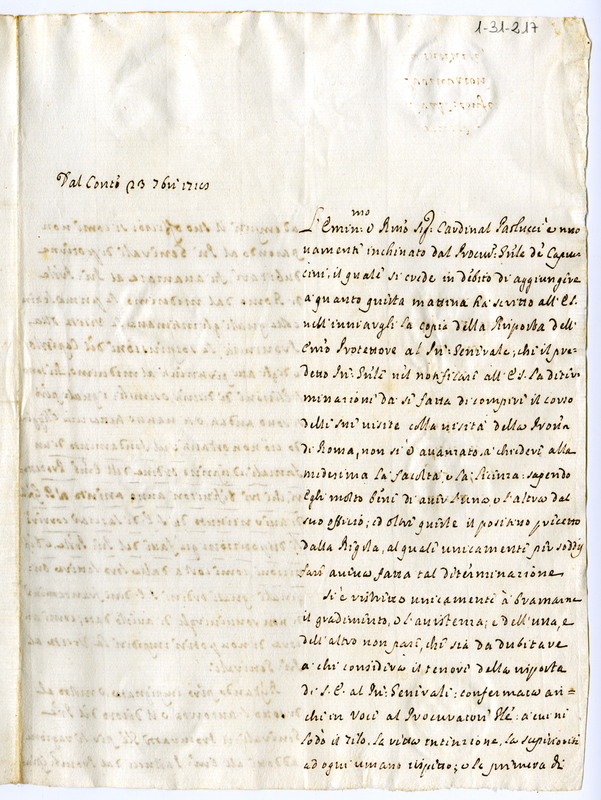 1-31-217
Dal Conto 23 7bre 1710
mo
L'Emin: e Rmo Sig: Cardinal Paolucci è nuo
vamente inchinato dal Procur: Gnle de Capuc
cini, il quale si crede in debito di aggiungere
a quanto questa mattina ha scritto all'E.S.
nell'inviargli la copia della Risposta dell'
Emo Protettore al Pre: Generale; che il pre
detto Pre: Gnle nel notificare all'E.S. la deter
minazione da sè fatta di compire il corso
delle sue visite colla visita della Provia
di Roma, non si è avanzato a chiedere alla
medesima la facoltà, o la licenza: sapendo
egli molto bene di aver l'una, e l'altra dal
suo officio; ed oltre questo il positivo precetto
dalla Regola, al quale unicamente per soddis
fare aveva fatta tal determinazione
Si è ristretto unicamente à bramarne
il gradimento, e l'assistenza; e dell'una, e
dell'altro non pare, che sia da dubitare
a chi considera il tenore della risposta
di S. E. al Pre: Generale: confermata an=
che in voce al Procuratore Gle: a cui ne
lodò il zelo, la retta intenzione, la superiorità
ad ogni umano rispetto; e la premura di